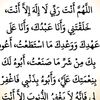 اللَّهُمَّ أَنْتَ رَبِّي لَا إِلَهَ إِلَّا أَنْتَ،
خَلَقْتَنِي وَأَنَا عَبْدُكَ، وَأَنَا عَلَى
عَهْدِكَ وَوَعْدِكَ مَا اسْتَطَعْتُ، أَعُوذُ
بِكَ مِنْ شَرِّ مَا صَنَعْتُ، أَبُوءُ لَكَ
بِنِعْمَتِكَ عَلَيَّ، وَأَبُوءُ بِذَنْبِي فَاغْفِرْ
لِي، فَإِنَّهُ لَا يَغْفِرُ الذُّنُوبَ إِلَّا أَنْتَ